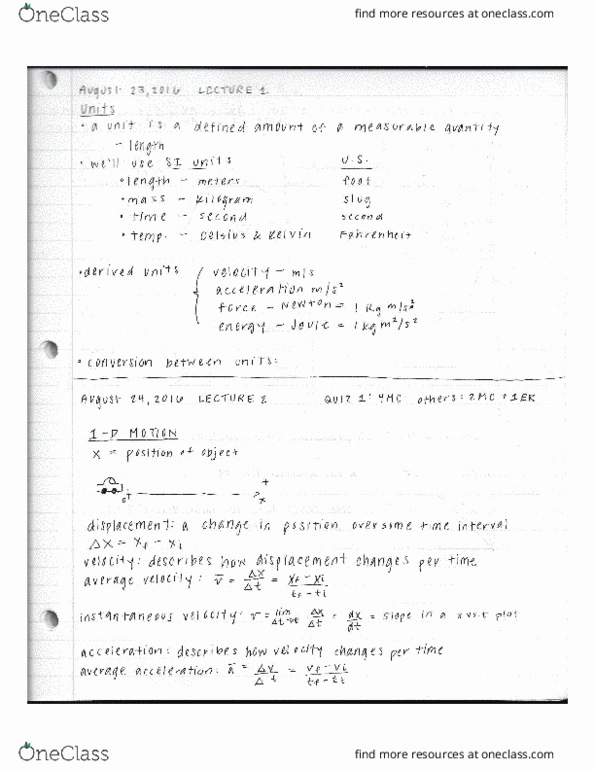 OneClass find more resources at oneclass.com
August 23, 2016 LECTURE 1
Units
• a unit is a defined amount of a measurable quantity
– length
• we'll use SI units U.S.
• length – meters foot
• mass – kilogram slug
• time – second second
• temp. – Celsius & Kelvin Fahrenheit
• derived units { velocity – m/s
acceleration m/s²
force – Newton = 1 kg m/s²
energy – Joule = 1 kg m²/s²
• conversion between units:
August 24, 2016 LECTURE 2 QUIZ 1: 4MC others: 2MC + 1ER
1-D MOTION
x = position of object
+
x
displacement: a change in position over some time interval
Δx = xf – xi
velocity: describes how displacement changes per time
average velocity: v̄ = Δx/Δt = (xf – xi)/(tf – ti)
instantaneous velocity: v = lim Δt→0 Δx/Δt = dx/dt = slope in a x vs. t plot
acceleration: describes how velocity changes per time
average acceleration: ā = Δv/Δt = (vf – vi)/(tf – ti)
OneClass find more resources at oneclass.com